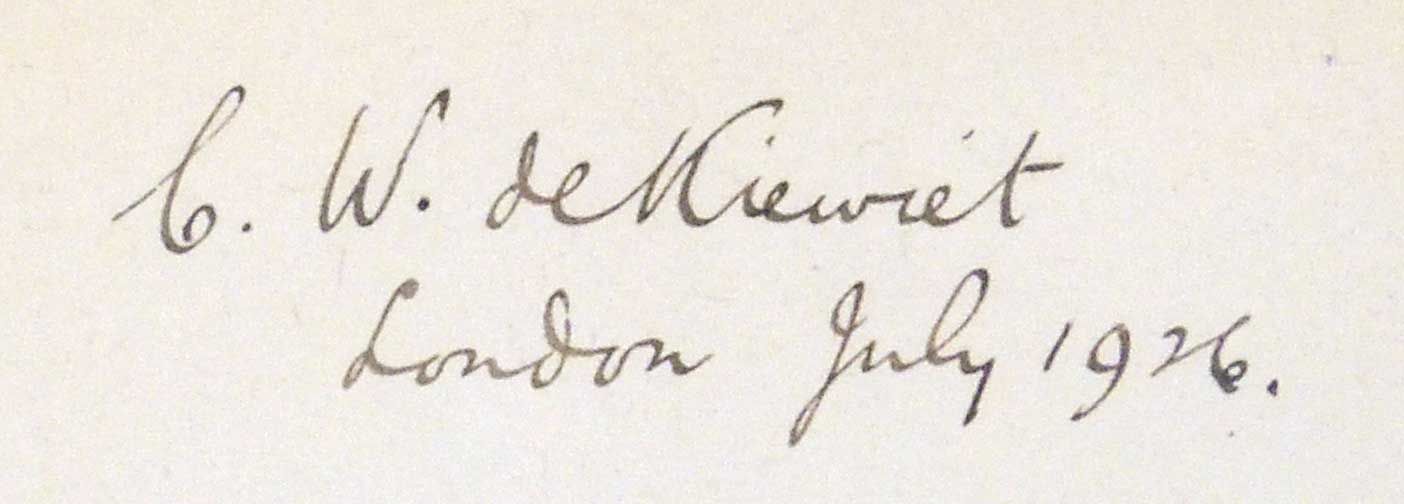 C. W. de Kiewiet
London July 1926.